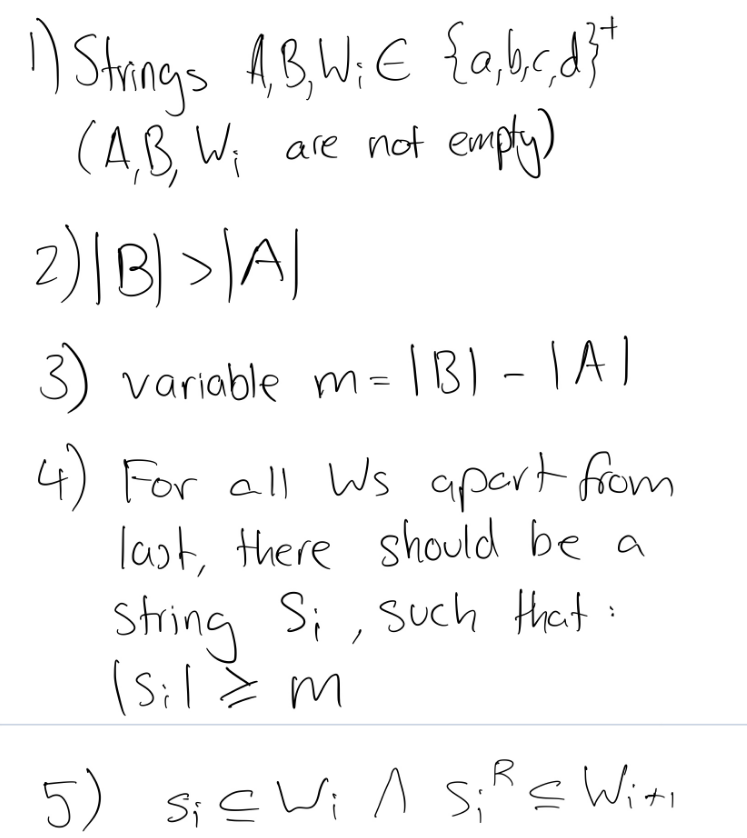 1) Strings A,B,Wᵢ ∈ {a,b,c,d}⁺
(A,B, Wᵢ are not empty)
2) |B| > |A|
3) variable m = |B| - |A|
4) For all Ws apart from
last, there should be a
string Sᵢ, such that :
|Sᵢ| ≥ m
5) Sᵢ ⊆ Wᵢ ∧ Sᵢᴿ ⊆ Wᵢ₊₁